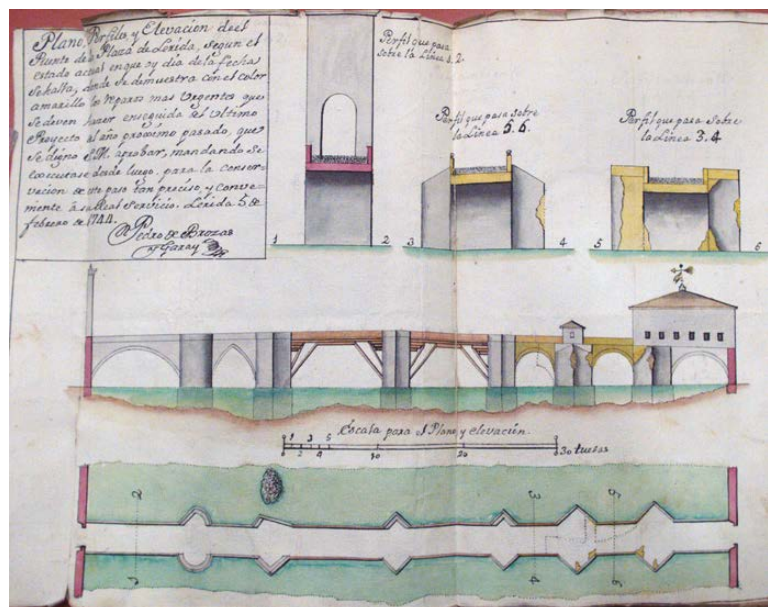 Plano, Perfiles y Elevacion del
Puente de la Plaza de Lerida, segun el
estado actual en que oy dia de la fecha
se halla, donde se demuestra con el color
amarillo los reparos mas Urgentes que
se deven hacer enseguida del ultimo
Proyecto al año proximo pasado, que
se digno S.M. aprobar, mandando se
executase desde luego, para la conser-
vacion de este paso tan preciso, y conve-
niente à su Real Servicio. Lerida 5 de
febrero de 1744.
Pedro de Brozas
y Garay
Perfil que pasa
sobre la Linea 1.2.
Perfil que pasa sobre
la Linea 5.6.
Perfil que pasa sobre
la Linea 3.4
1 2 3 4 5 6
Escala para el Plano y elevacion.
1 3 5
2 4 10 20 30 tuesas
2 3 5
1 4 6